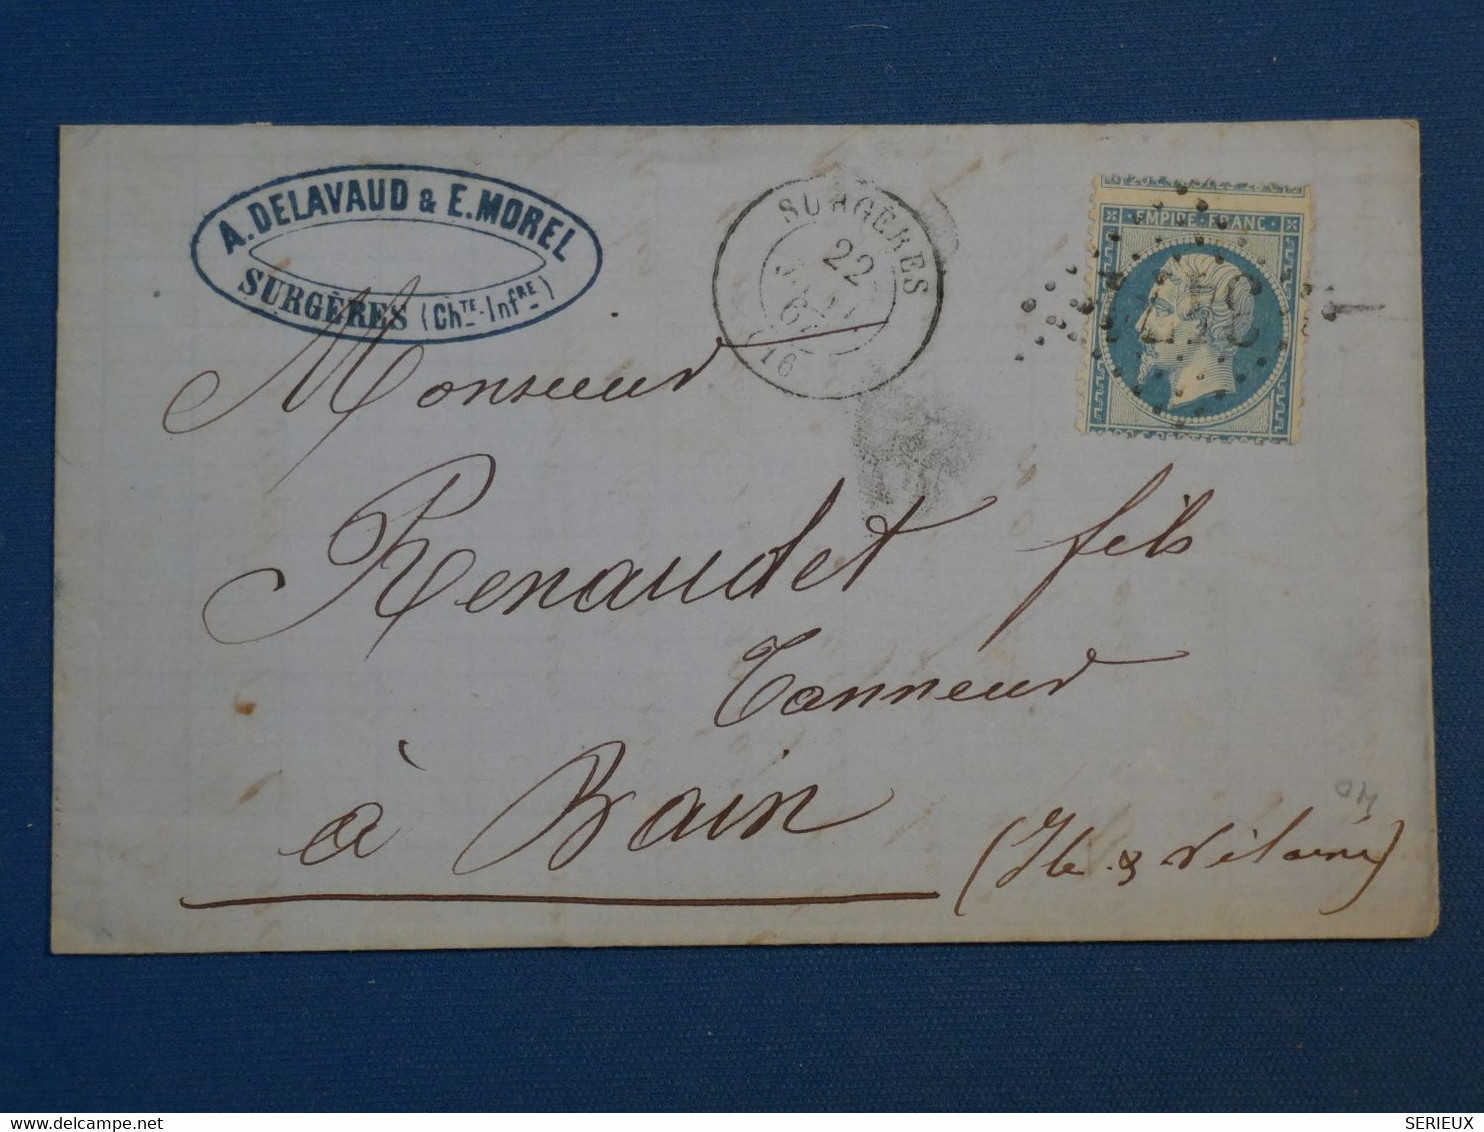 A. DELAVAUD & E. MOREL
SURGÈRES (Ch.TE-Inf.RE)
SURGÈRES
22
(16)
EMPIRE FRANC
Monsieur
Renaudet fils
Tanneur
à Bain
(Ile & Vilaine)
delcampe.net
SERIEUX